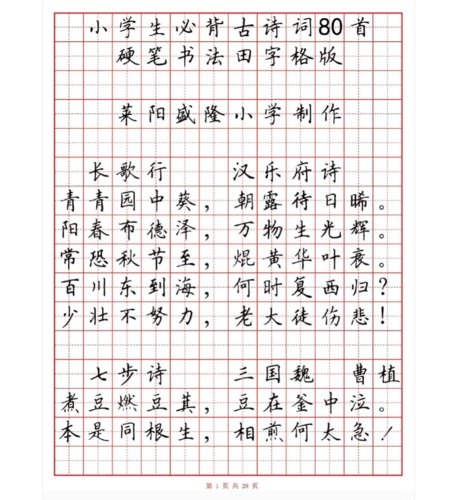 小学生必背古诗词80首
硬笔书法田字格版
莱阳盛隆小学制作
长歌行 汉乐府诗
青青园中葵，朝露待日晞。
阳春布德泽，万物生光辉。
常恐秋节至，焜黄华叶衰。
百川东到海，何时复西归？
少壮不努力，老大徒伤悲！
七步诗 三国魏 曹植
煮豆燃豆萁，豆在釜中泣。
本是同根生，相煎何太急！
第 1 页 共 28 页